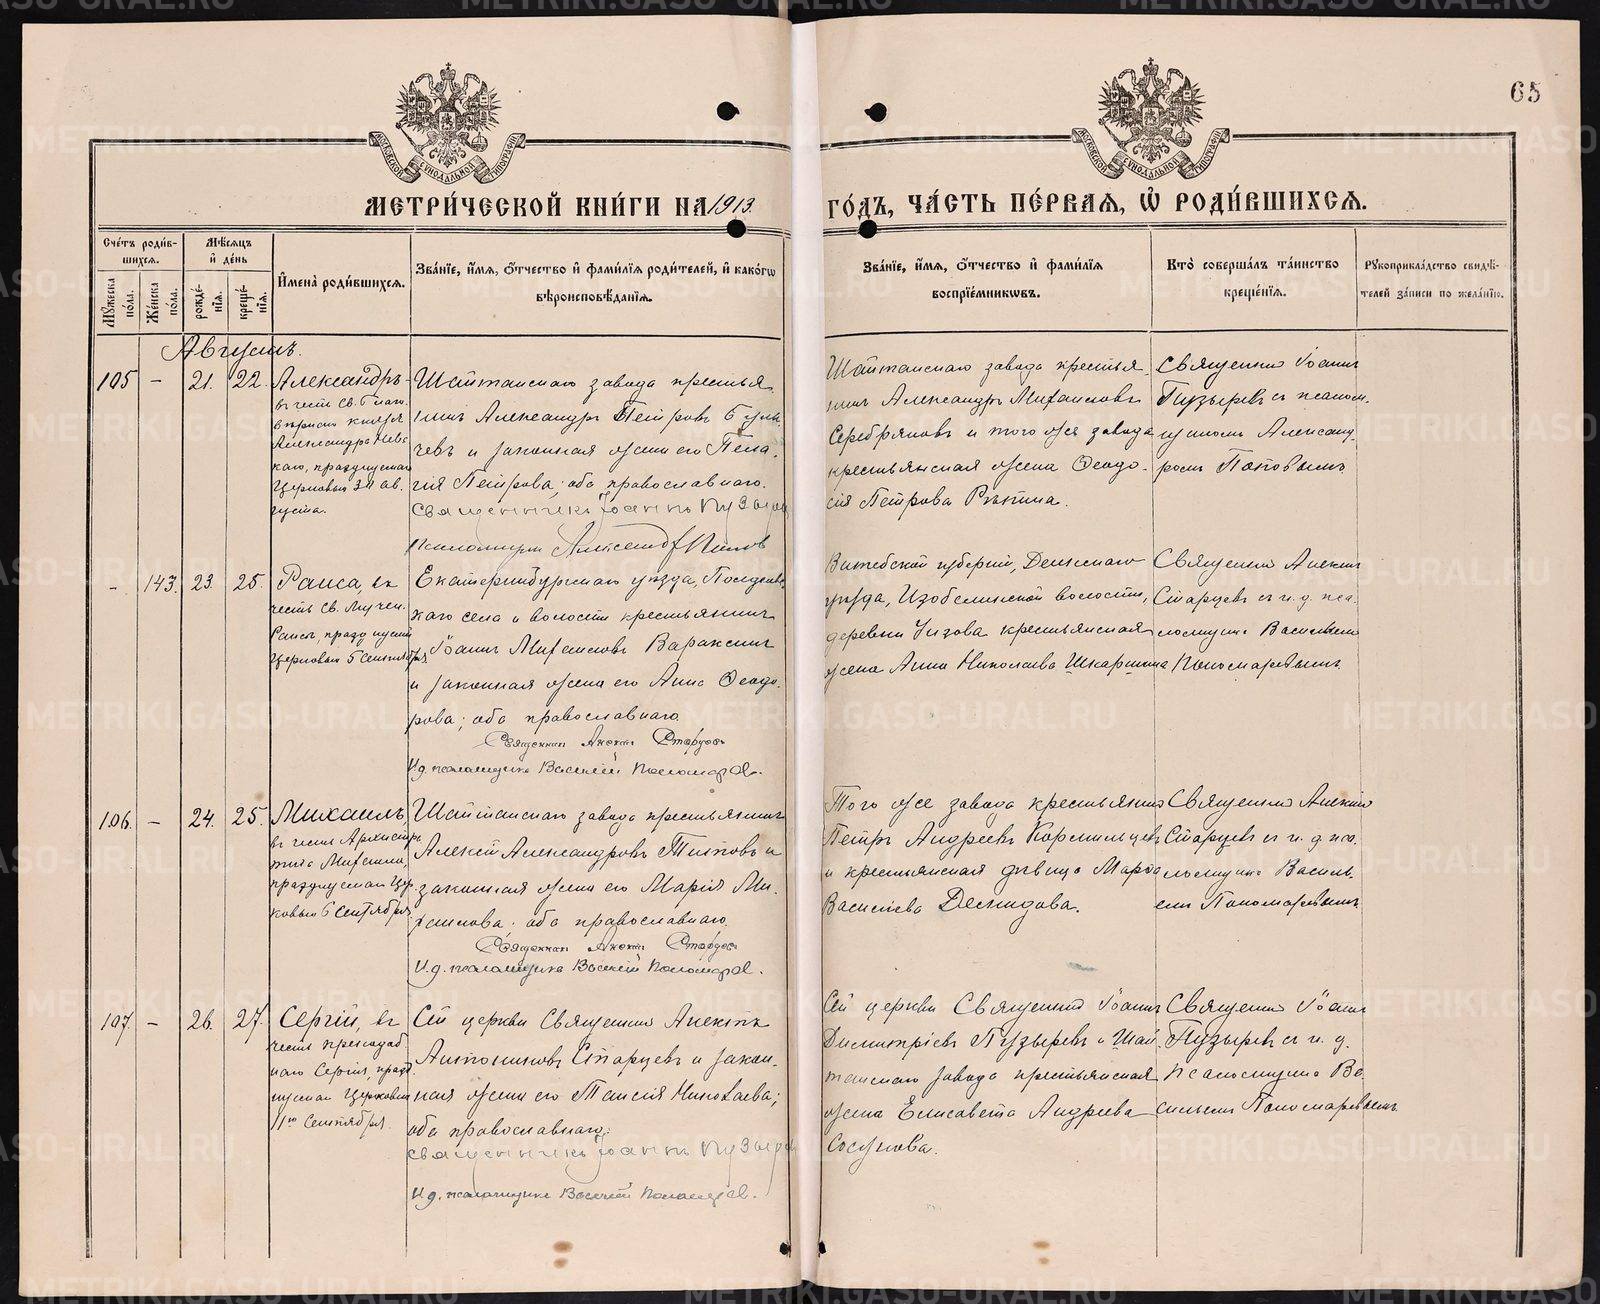 65
МЕТРИ́ЧЕСКОЙ КНИ́ГИ НА 1913. ГО́ДЪ, ЧА́СТЬ ПЕ́РВАЯ, Ѡ РОДИ́ВШИХСЯ.
Сче́тъ роди́в-
шихся.
Мꙋ́жеска по́ла.
Же́нска по́ла.
Мѣ́сяцъ и́ де́нь
рожде́-нїя.
креще́-нїя.
И́мена̀ роди́вшихся.
Зва́нїе, и́мя, о́тчество и́ фами́лїя роди́телей, и́ како́гѡ
вѣроисповѣ́данїя.
Зва́нїе, и́мя, о́тчество и́ фами́лїя
воспрїе́мникѡвъ.
Кто̀ соверша́лъ та́инство
креще́нїя.
Рꙋкоприкла́дство свидѣ́-
телей за́писи по жела́нїю.
Августъ.
105 – 21. 22.
Александръ
въ честь Св. Благо
вѣрнаго князя
Александра Невс
каго, празднуемаго
Церковью 30 ав.
густа.
Шайтанскаго завода крестья
нинъ Александръ Петровъ
и законная жена его Пела.
гія Петрова; оба православнаго.
Священникъ Іоаннъ Пузырев
Псаломщикъ Александръ Попов
Шайтанскаго завода крестья
нинъ Александръ Михаиловъ
Серебряковъ и того же завода
крестьянская жена Ѳеодо.
сія Петрова Рѣпина.
Священникъ Іоаннъ
Пузыревъ съ псалом.
щикомъ Александ.
ромъ Поповымъ
– 143. 23. 25.
Раиса, въ
честь Св. Мучен.
Раисы, праздуемой
Церковью 5 Сентября
Екатеринбургскаго уѣзда,
каго села и волости крестьянинъ
Іоаннъ Михаиловъ Вараксинъ
и законная жена его Анна Ѳеодо.
рова; оба православнаго.
Священник Алексій Старцев
И.д. псаломщика Василій Пономарев.
Витебской губерніи,
уѣзда, волости,
деревни крестьянская
жена Анна Николаева
Священникъ Алексій
Старцевъ съ и. д. пса.
ломщика Васильемъ
Пономаревымъ
106. – 24. 25.
Михаилъ,
въ честь Архистра
тига Михаила,
празднуемаго Цер
ковью 6 Сентября
Шайтанскаго завода крестьянинъ
Алексій Александровъ Титовъ и
законная жена его Марія Ми.
хаилова; оба православнаго.
Священник Алексій Старцев
И.д. псаломщика Василій Пономарев.
Того же завода крестьянинъ
Петръ Андреевъ Кормильцевъ
и крестьянская дѣвица Марѳа
Васильева Демидова.
Священникъ Алексій
Старцевъ съ и. д. пса.
ломщика Василь.
емъ Пономаревымъ
107. – 26. 27.
Сергій, въ
честь преподоб
наго Сергія, празд
нуемаго Церковью
11го Сентября.
Сей церкви Священникъ Алексій
Антониновъ Старцевъ и закон.
ная жена его Таисія Николаева;
оба православнаго.
Священникъ Іоаннъ Пузырев
И.д. псаломщика Василій Пономарев.
Сей церкви Священникъ Іоаннъ
Димитріевъ Пузыревъ и Шай
танскаго завода крестьянская
жена Елисавета Андреева
Сосунова.
Священникъ Іоаннъ
Пузыревъ съ и. д.
псаломщика Ва.
сильемъ Пономаревымъ
METRIKI.GASO-URAL.RU